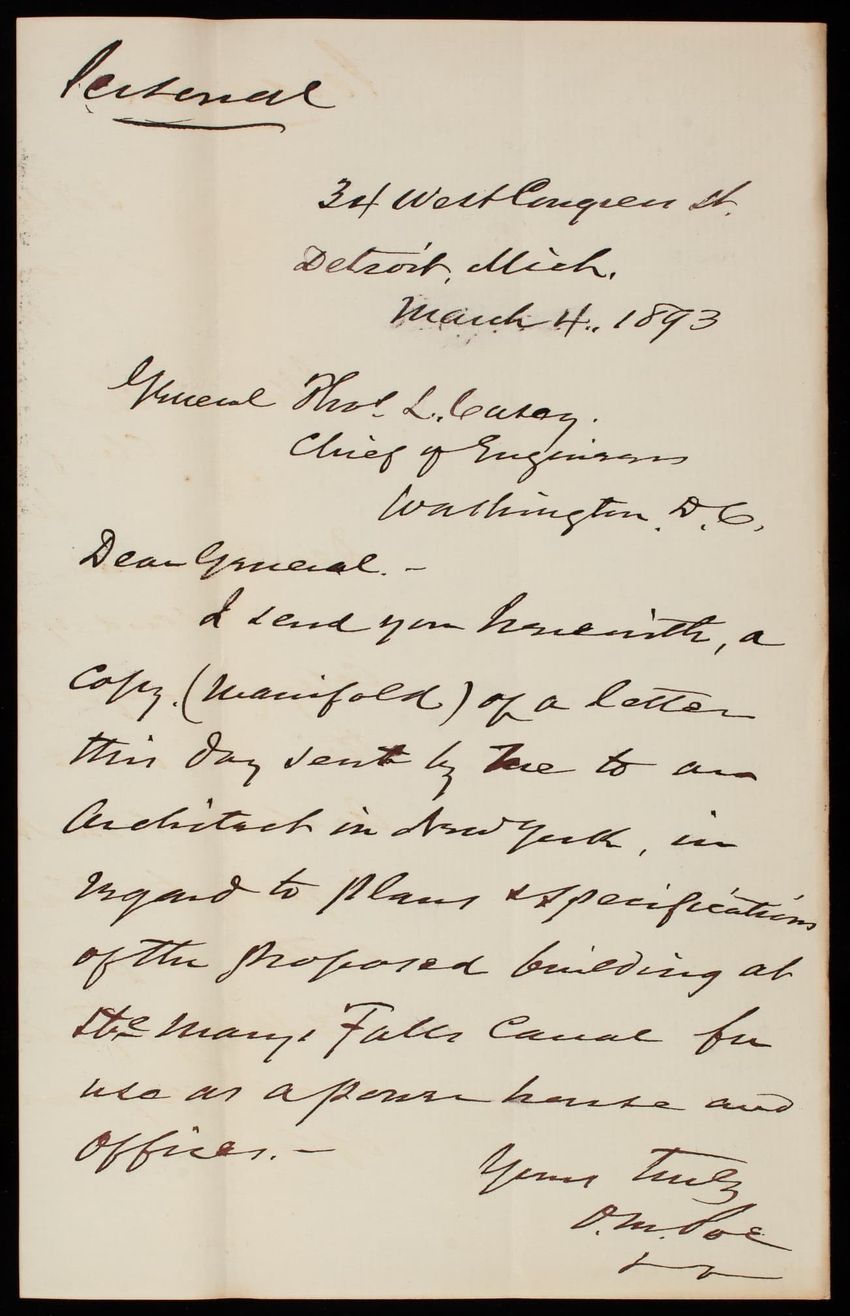 Personal
34 West Congress St.
Detroit, Mich.
March 4., 1893
General Thos. L. Casey.
Chief of Engineers
Washington. D.C.
Dear General. -
I send you herewith, a
copy. (manifold) of a letter
this day sent by me to an
Architect in New York, in
regard to plans & specifications
of the proposed building at
Ste Marys Falls Canal for
use as a power house and
offices. -
Yours truly
O.M. Poe